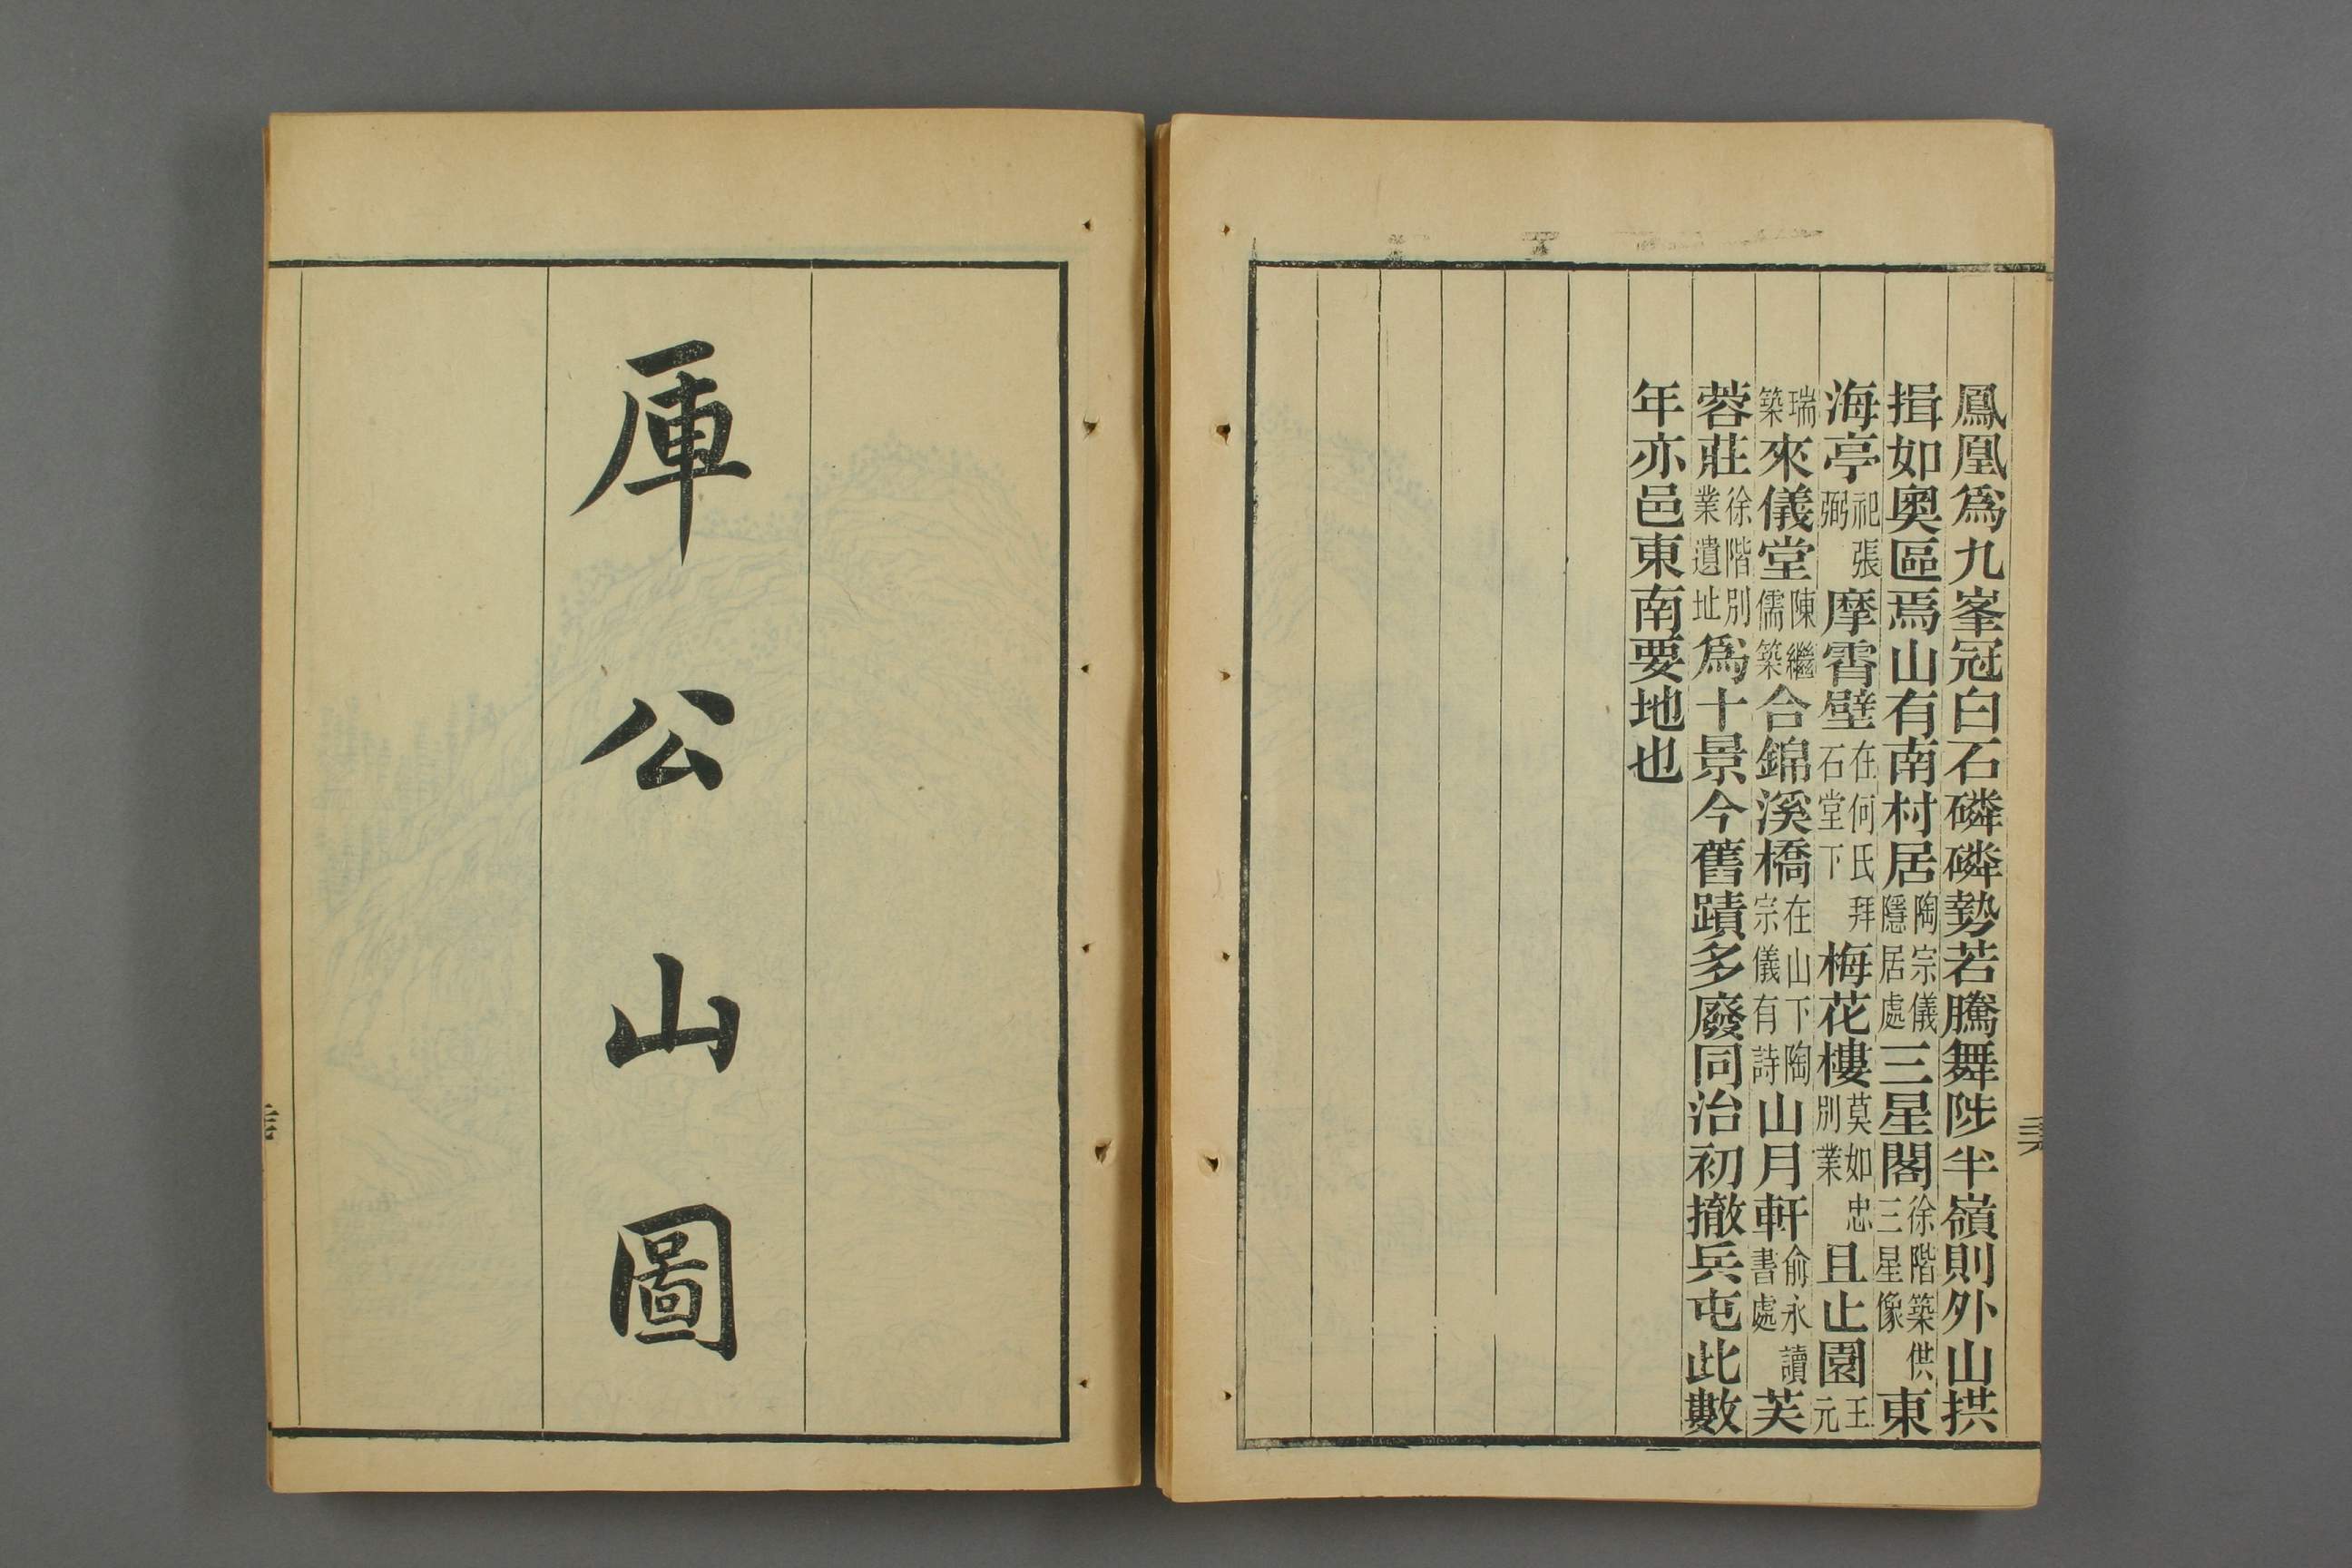 鳳凰爲九峯冠白石磷磷勢若騰舞陟半嶺則外山拱
揖如奧區焉山有南村居陶宗儀隱居處三星閣徐階築供三星像東
海亭祀張弼摩霄壁在何氏拜石堂下梅花樓莫如忠別業且止園王元
瑞築來儀堂陳繼儒築合錦溪橋在山下陶宗儀有詩山月軒俞永讀書處芙
蓉莊徐階別業遺址爲十景今舊蹟多廢同治初撤兵屯此數
年亦邑東南要地也
厙公山圖